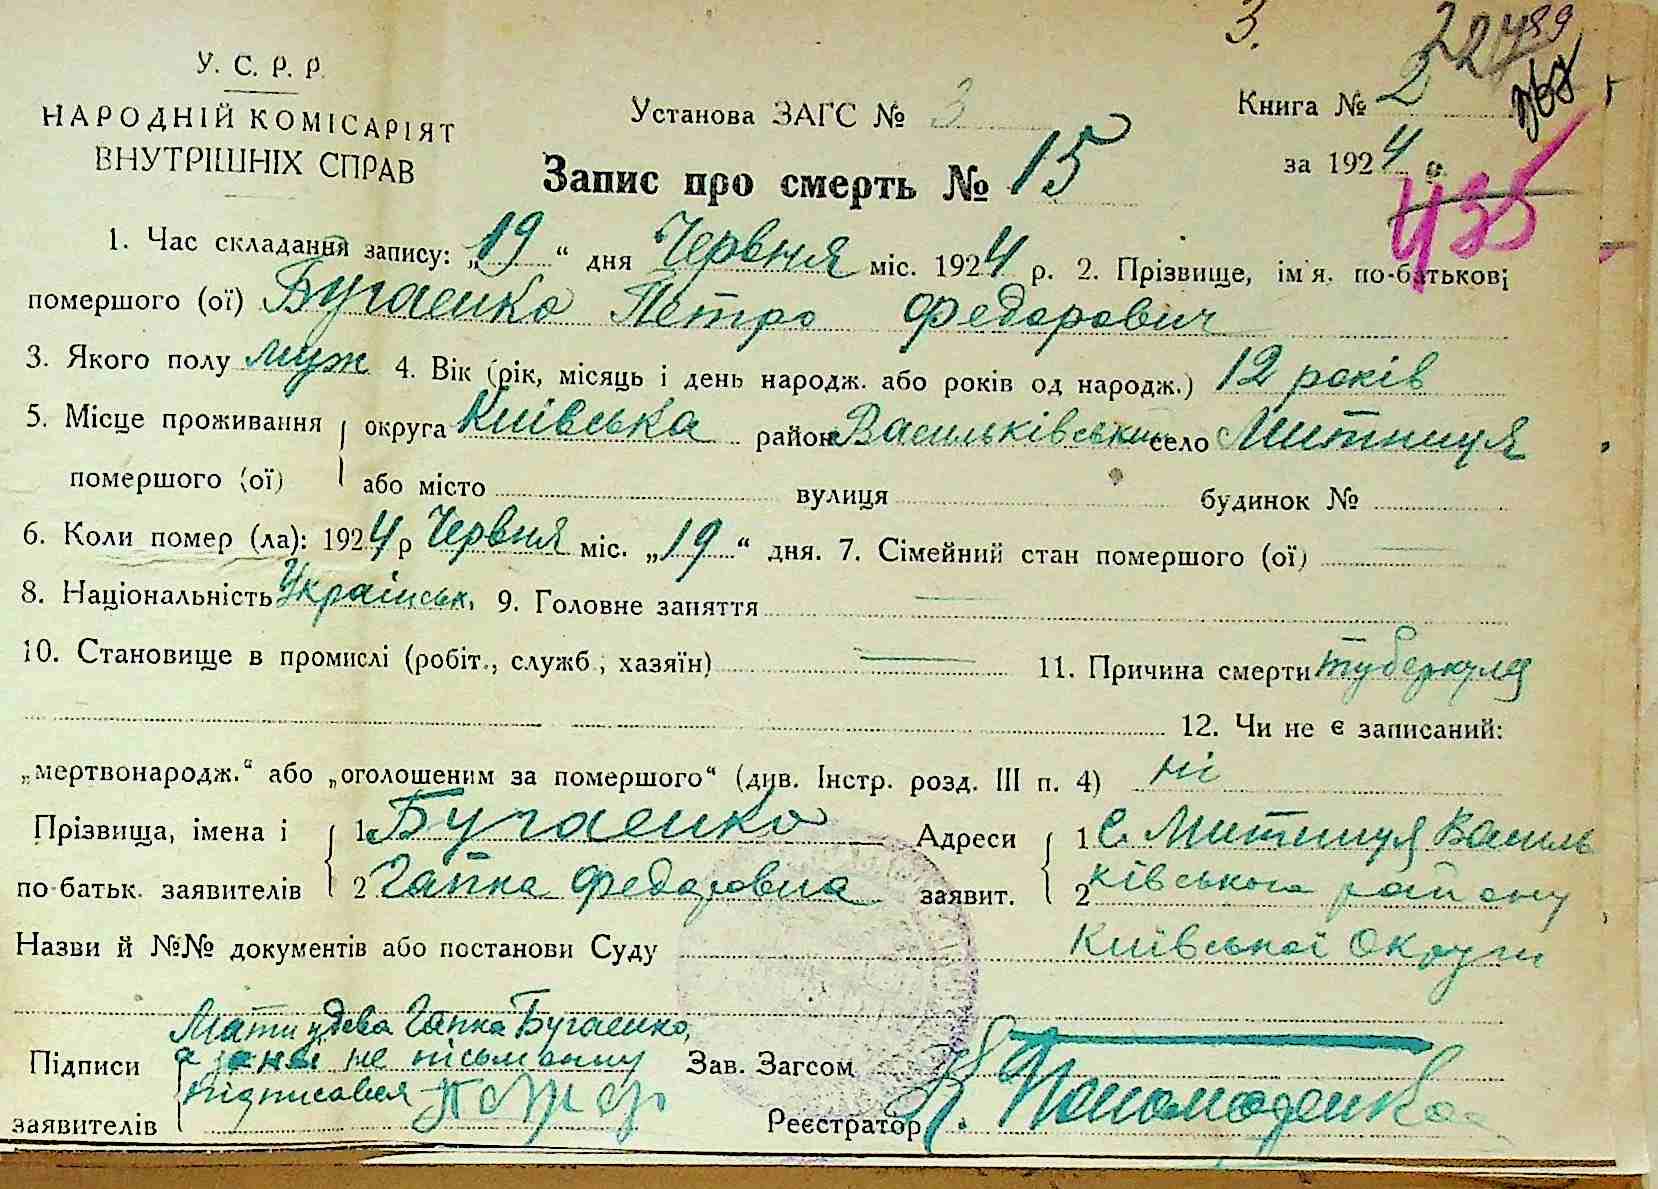 3.
У. С. Р. Р.
НАРОДНІЙ КОМІСАРІЯТ
ВНУТРІШНІХ СПРАВ
Установа ЗАГС № 3
Книга № 2
за 1924 р.
435
Запис про смерть № 15
1. Час складання запису: „19“ дня Червня міс. 1924 р. 2. Прізвище, ім'я, по-батькові
помершого (ої) Бугаенко Петро Федорович
3. Якого полу муж 4. Вік (рік, місяць і день народж. або років од народж.) 12 років
5. Місце проживання округа Київська район Васильківськи село Митниця
помершого (ої) або місто вулиця будинок №
6. Коли помер (ла): 1924 р Червня міс. „19“ дня. 7. Сімейний стан помершого (ої) —
8. Національність Українськ. 9. Головне заняття —
10. Становище в промислі (робіт., служб., хазяїн) — 11. Причина смерти туберкулз
12. Чи не є записаний:
„мертвонародж.“ або „оголошеним за помершого“ (див. Інстр. розд. III п. 4) ні
Прізвища, імена і 1 Бугаенко Адреси 1 С. Митниця Василь
по-батьк. заявителів 2 Гапка Федоровна заявит. 2 ківського району
Назви й №№ документів або постанови Суду Київської Округи
Мати Гапка Бугаенко,
Підписи а не письмену Зав. Загсом
підписався
заявителів Реєстратор